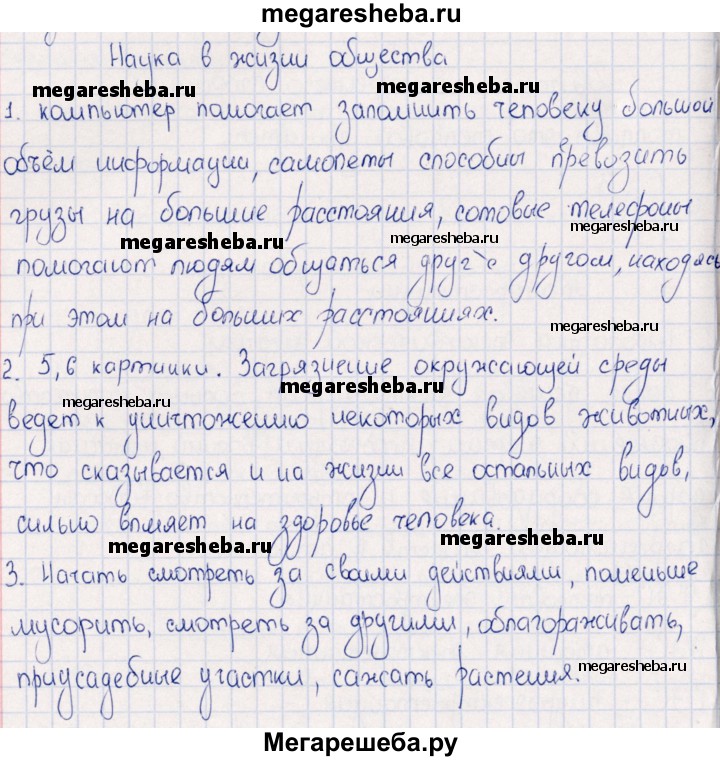 megaresheba.ru
Наука в жизни общества
megaresheba.ru megaresheba.ru
1. компьютер помогает запомнить человеку большой
объём информации, самолеты способны превозить
грузы на большие расстояния, сотовые телефоны
megaresheba.ru megaresheba.ru
помогают людям общаться друг с другом, находясь
при этом на больших расстояниях.
megaresheba.ru
2. 5,6 картинки. Загрязнение окружающей среды
megaresheba.ru megaresheba.ru
ведет к уничтожению некоторых видов животных,
что сказывается и на жизни все остальных видов,
сильно влияет на здоровье человека.
megaresheba.ru megaresheba.ru
3. Начать смотреть за своими действиями, поменьше
мусорить, смотреть за другими, облагораживать,
приусадебные участки, сажать растения.
megaresheba.ru
Мегарешеба.ру